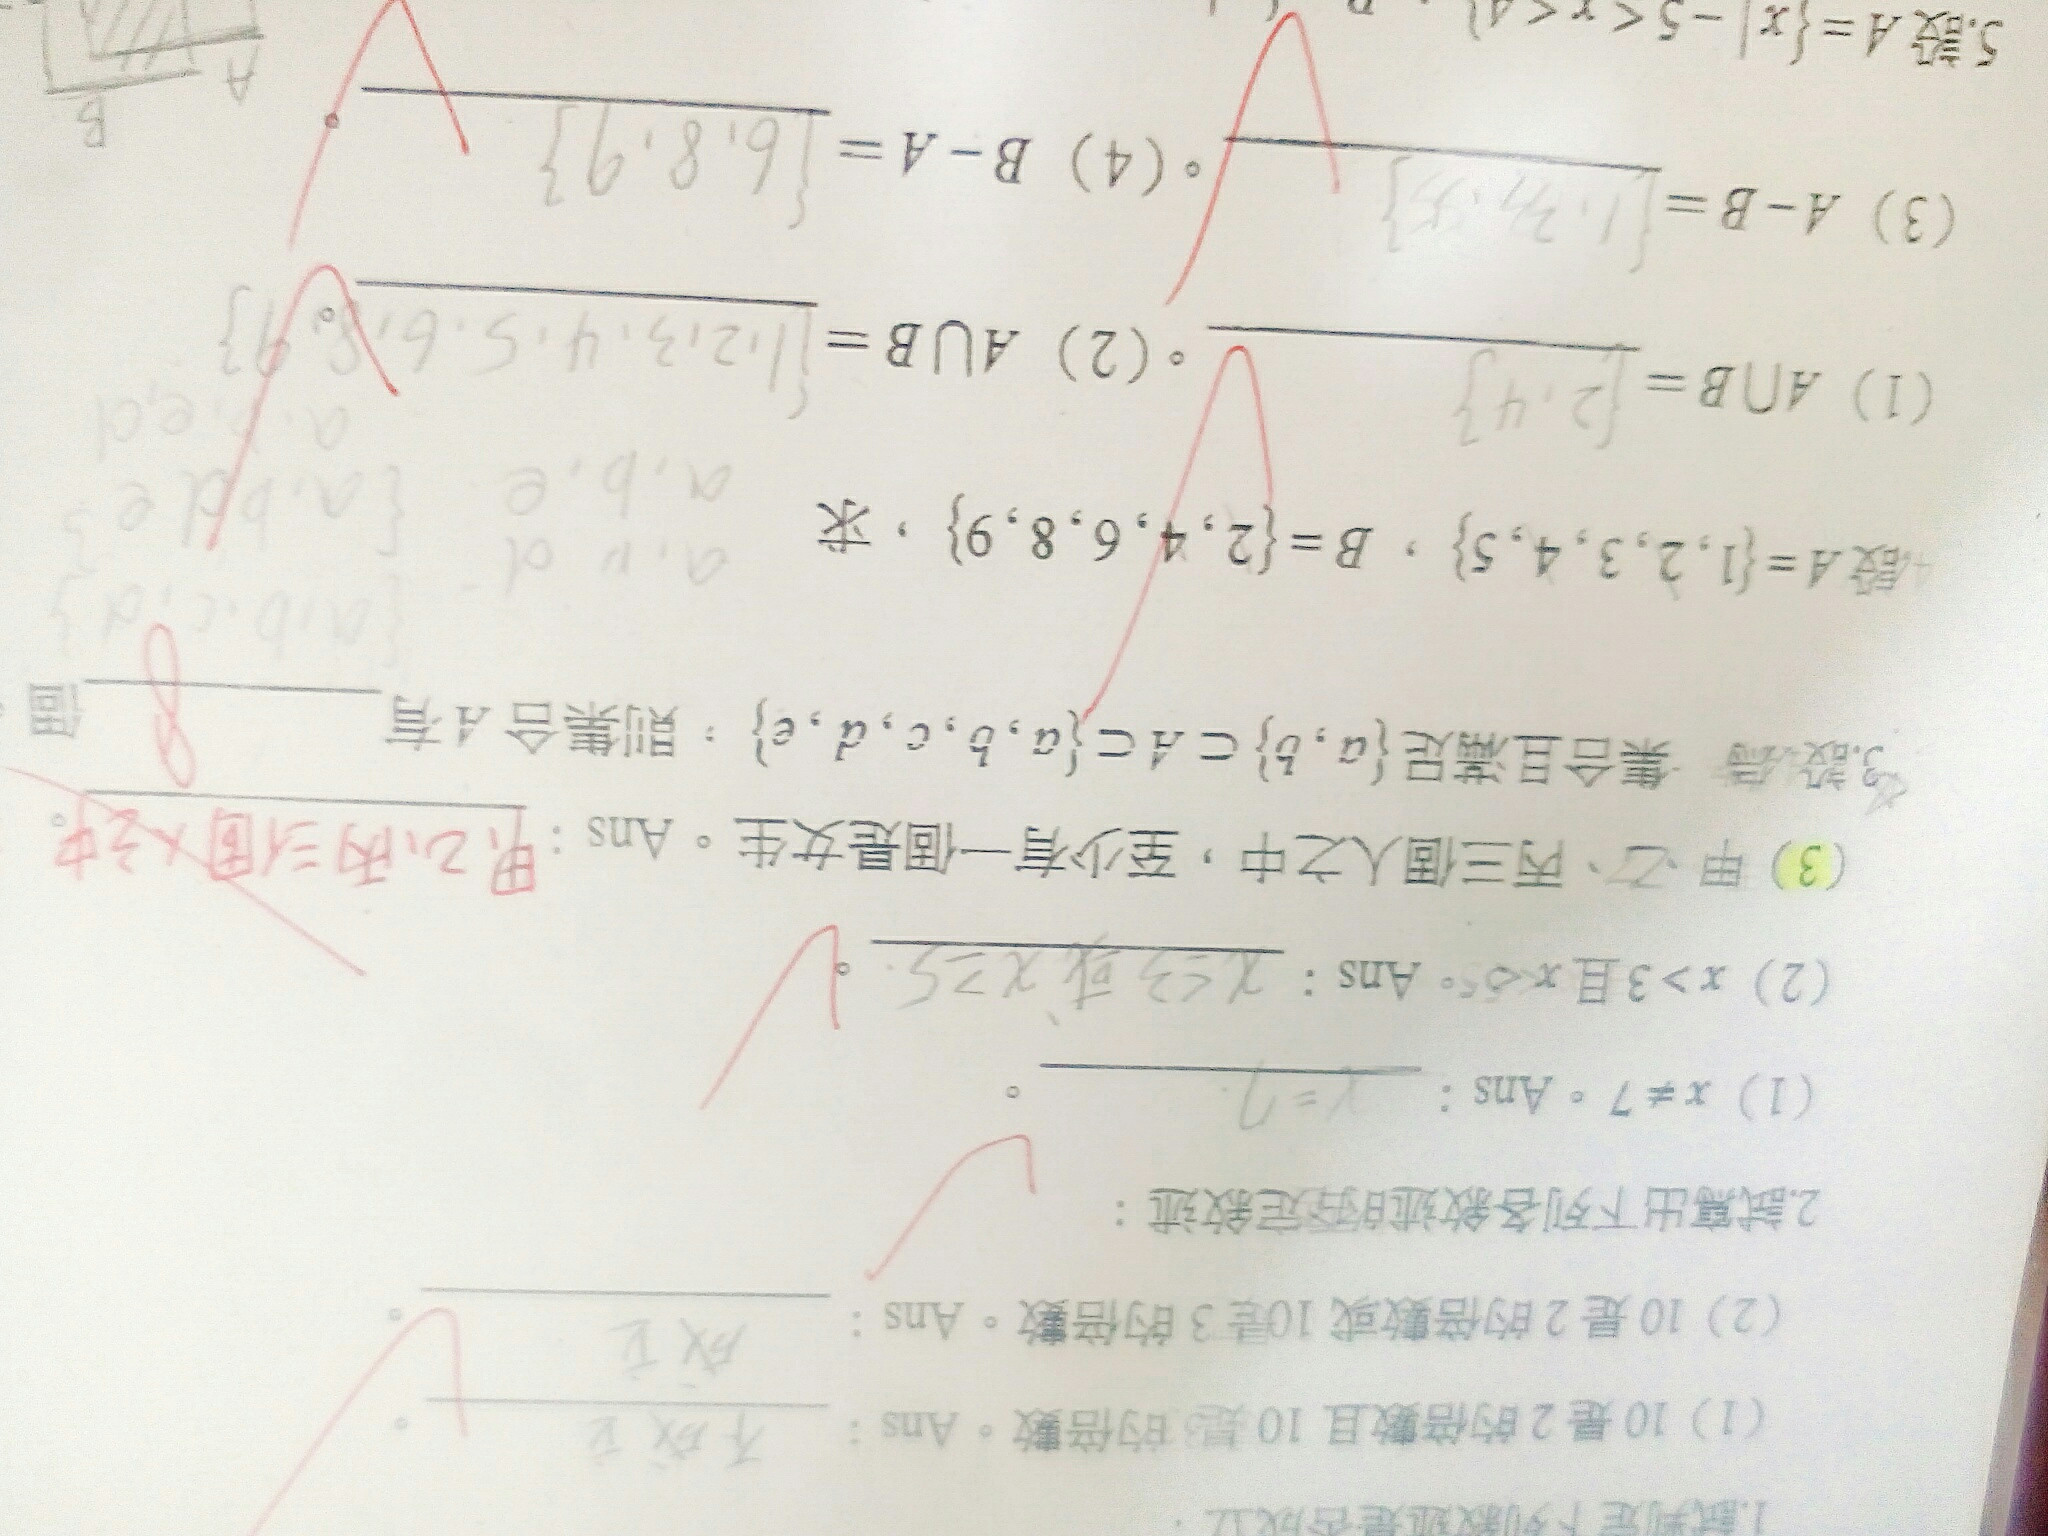 1.試判定下列敘述是否成立
(1) 10 是 2 的倍數且 10 是 3 的倍數。Ans：不成立。
(2) 10 是 2 的倍數或 10 是 3 的倍數。Ans：成立。
2.試寫出下列各敘述的否定敘述：
(1) x≠7。Ans：x=7。
(2) x>3 且 x<5。Ans：x≤3 或 x≥5。
(3) 甲、乙、丙三個人之中，至少有一個是女生。Ans：甲,乙,丙三個人之中。
3.設 集合且滿足{a,b}⊂A⊂{a,b,c,d,e}，則集合A有 8 個
{a,b,c,d}
4.設A={1,2,3,4,5}，B={2,4,6,8,9}，求
a,b,e {a,b d e}
(1) A∩B={2,4}。(2) A∪B={1,2,3,4,5,6,8,9}。
(3) A−B={1,3,5}。(4) B−A={6,8,9}。
B
A
5.設A={x|−5<x<4}